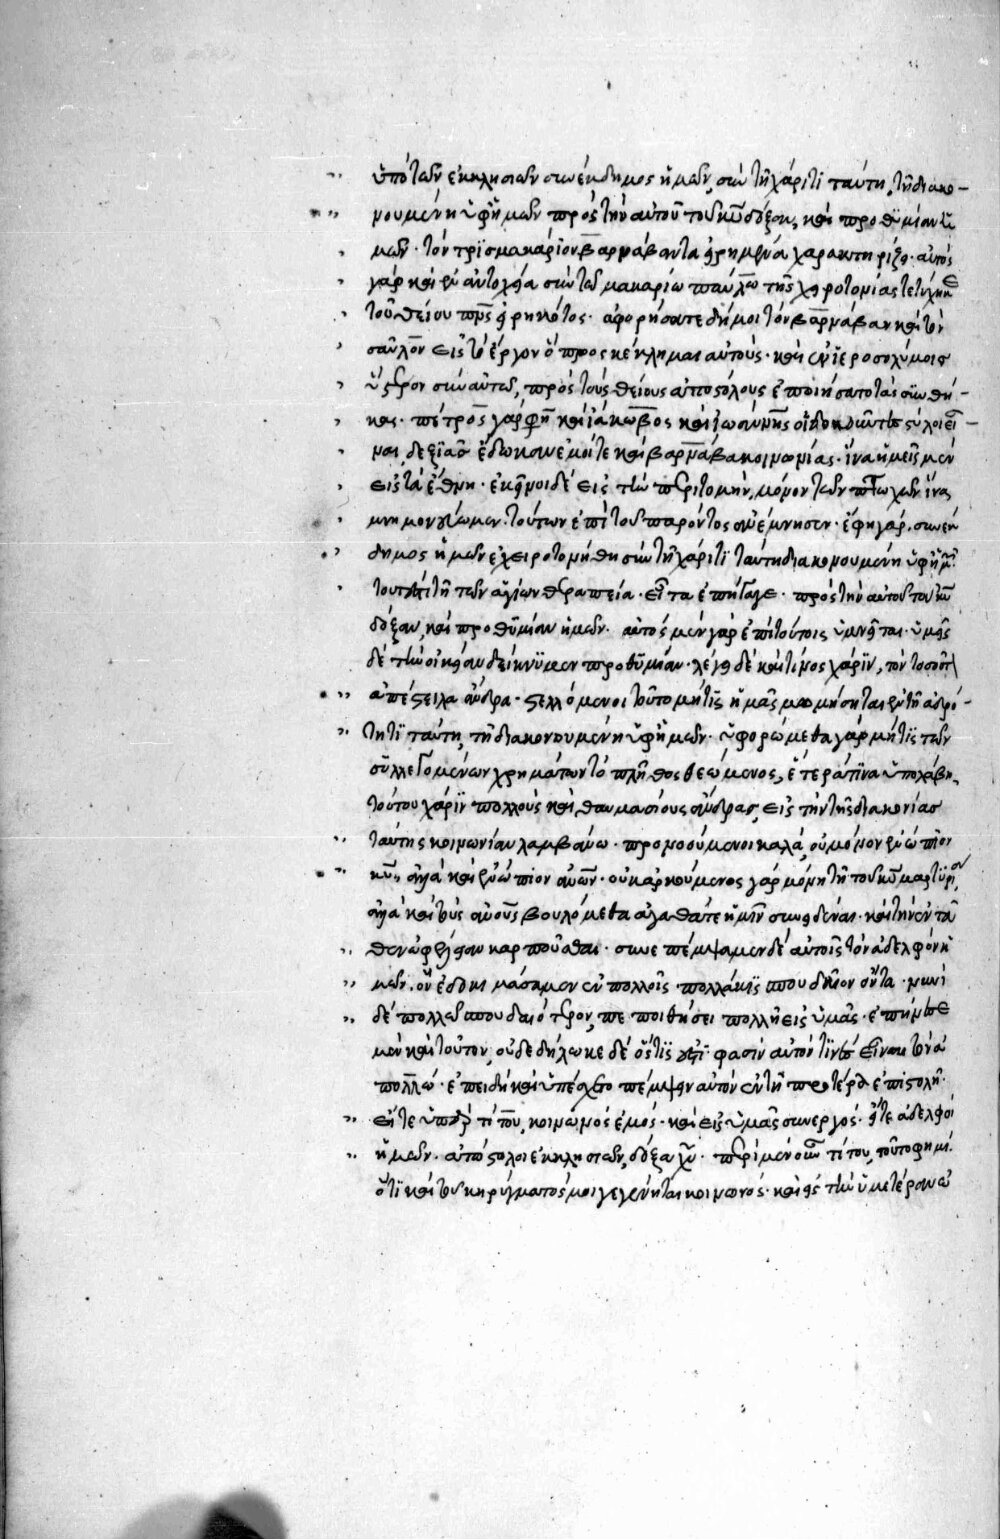 ὑπὸ τῶν ἐκκλησιῶν συνέκδημος ἡμῶν, σὺν τῇ χάριτι ταύτῃ, τῇ διακο-
νουμένῃ ὑφ' ἡμῶν πρὸς τὴν αὐτοῦ τοῦ κυ δόξαν, καὶ προθυμίαν ἡ
μῶν. τὸν τρισμακάριον βαρνάβαν τὰ εἰρημένα χαρακτηρίζει. αὐτὸς
γὰρ καὶ ἐν ἀντιοχείᾳ σὺν τῷ μακαρίῳ παύλῳ τῆς χειροτονίας τετύχηκε
τοῦ θείου πνς εἰρηκότος. ἀφορήσατε δή μοι τὸν βαρνάβαν καὶ τὸν
σαῦλον εἰς τὸ ἔργον ὃ προσκέκλημαι αὐτούς. καὶ ἐν ἱεροσολύμοις
ὕστερον σὺν αὐτῷ, πρὸς τοὺς θείους ἀποστόλους ἐποιήσατο τὰς συνθή-
κας. πέτρος γάρ φησι καὶ ἰάκωβος καὶ ἰωάννης οἱ δοκοῦντες στύλοι εἶ-
ναι, δεξιὰς ἔδωκαν ἐμοί τε καὶ βαρνάβᾳ κοινωνίας. ἵνα ἡμεῖς μὲν
εἰς τὰ ἔθνη. ἐκεῖνοι δὲ εἰς τὴν περιτομήν, μόνον τῶν πτωχῶν ἵνα
μνημονεύωμεν. τούτων ἐπὶ τοῦ παρόντος ἀνέμνησεν. ἔφη γάρ. συνέκ
δημος ἡμῶν ἐχειροτονήθη σὺν τῇ χάριτι ταύτῃ διακονουμένῃ ὑφ' ἡμῶν.
τουτέστι τῇ τῶν ἁγίων θεραπείᾳ. εἶτα ἐπήγαγε. πρὸς τὴν αὐτοῦ τοῦ κυ
δόξαν, καὶ προθυμίαν ἡμῶν. αὐτὸς μὲν γὰρ ἐπὶ τούτοις ὑμνεῖται. ὑμεῖς
δὲ τὴν οἰκείαν δείκνυμεν προθυμίαν. λέγει δὲ καὶ τίνος χάριν, τὸν τοσοῦτον
ἀπέστειλα ἄνδρα. στελλόμενοι τοῦτο μή τις ἡμᾶς μωμήσηται ἐν τῇ ἁδρό-
τητι ταύτῃ, τῇ διακονουμένῃ ὑφ' ἡμῶν. ὑφορώμεθα γὰρ μή τις τῶν
συλλεγομένων χρημάτων τὸ πλῆθος θεώμενος, ἕτερά τινα ὑπολάβῃ,
τούτου χάριν πολλοὺς καὶ θαυμασίους ἄνδρας, εἰς τὴν τῆς διακονίας
ταύτης κοινωνίαν λαμβάνω. προνοούμενοι καλὰ, οὐ μόνον ἐνώπιον
κυ, ἀλλὰ καὶ ἐνώπιον ἀνων. οὐκ ἀρκούμενος γὰρ μόνῃ τῇ τοῦ κυ μαρτυρίᾳ,
ἀλλὰ καὶ τοὺς ἀνους βουλόμεθα ἀγαθά τε ἡμῖν συνειδέναι. καὶ τὴν ἐνταῦ
θεν ὠφέλειαν καρποῦσθαι. συνεπέμψαμεν δὲ αὐτοῖς τὸν ἀδελφὸν ἡ
μῶν. ὃν ἐδοκιμάσαμεν ἐν πολλοῖς πολλάκις σπουδαῖον ὄντα. νυνὶ
δὲ πολλῷ σπουδαιότερον, πεποιθήσει πολλῇ εἰς ὑμᾶς. ἐπήνεσε
μὲν καὶ τοῦτον, οὐ δεδήλωκε δὲ ὅστις ἐστί. φασὶν αὐτόν τινες εἶναι τὸν ἀ
πολλώ. ἐπειδὴ καὶ ὑπέσχετο πέμψειν αὐτὸν ἐν τῇ προτέρᾳ ἐπιστολῇ.
εἴτε ὑπὲρ τίτου, κοινωνὸς ἐμὸς. καὶ εἰς ὑμᾶς συνεργός. εἴτε ἀδελφοὶ
ἡμῶν. ἀπόστολοι ἐκκλησιῶν, δόξα χυ. περὶ μὲν οὖν τίτου, τοῦτο φημί.
ὅτι καὶ τοῦ κηρύγματός μοι γεγένηται κοινωνός. καὶ εἰς τὴν ὑμετέραν ὠ